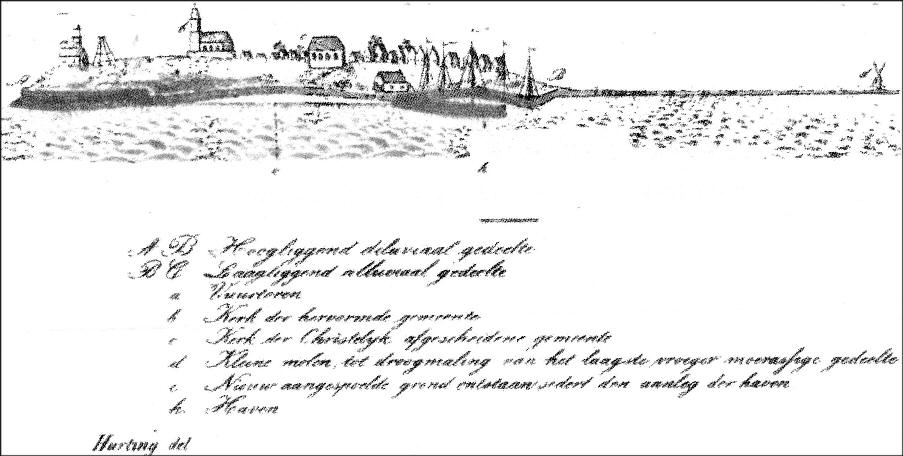 e h
A B Hoogliggend diluviaal gedeelte
B C Laagliggend alluviaal gedeelte
a Vuurtoren
b Kerk der hervormde gemeente
c Kerk der Christelijk afgescheidene gemeente
d Kleine molen, tot droogmaling van het laagste vroeger moerassige gedeelte
e Nieuw aangespoelde grond ontstaan sedert den aanleg der haven
h Haven
Harting del